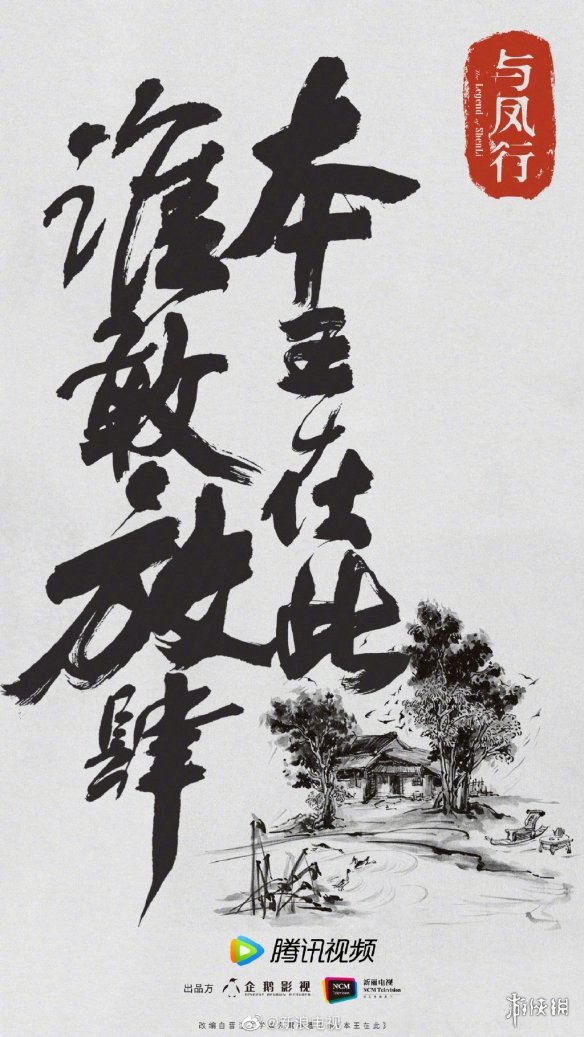 本王在此
谁敢放肆
与凤行
The Legend of ShenLi
腾讯视频
出品方
企鹅影视
NCM
Television
新丽电视
NCM Television
@新浪电视
游侠网
本王在此》